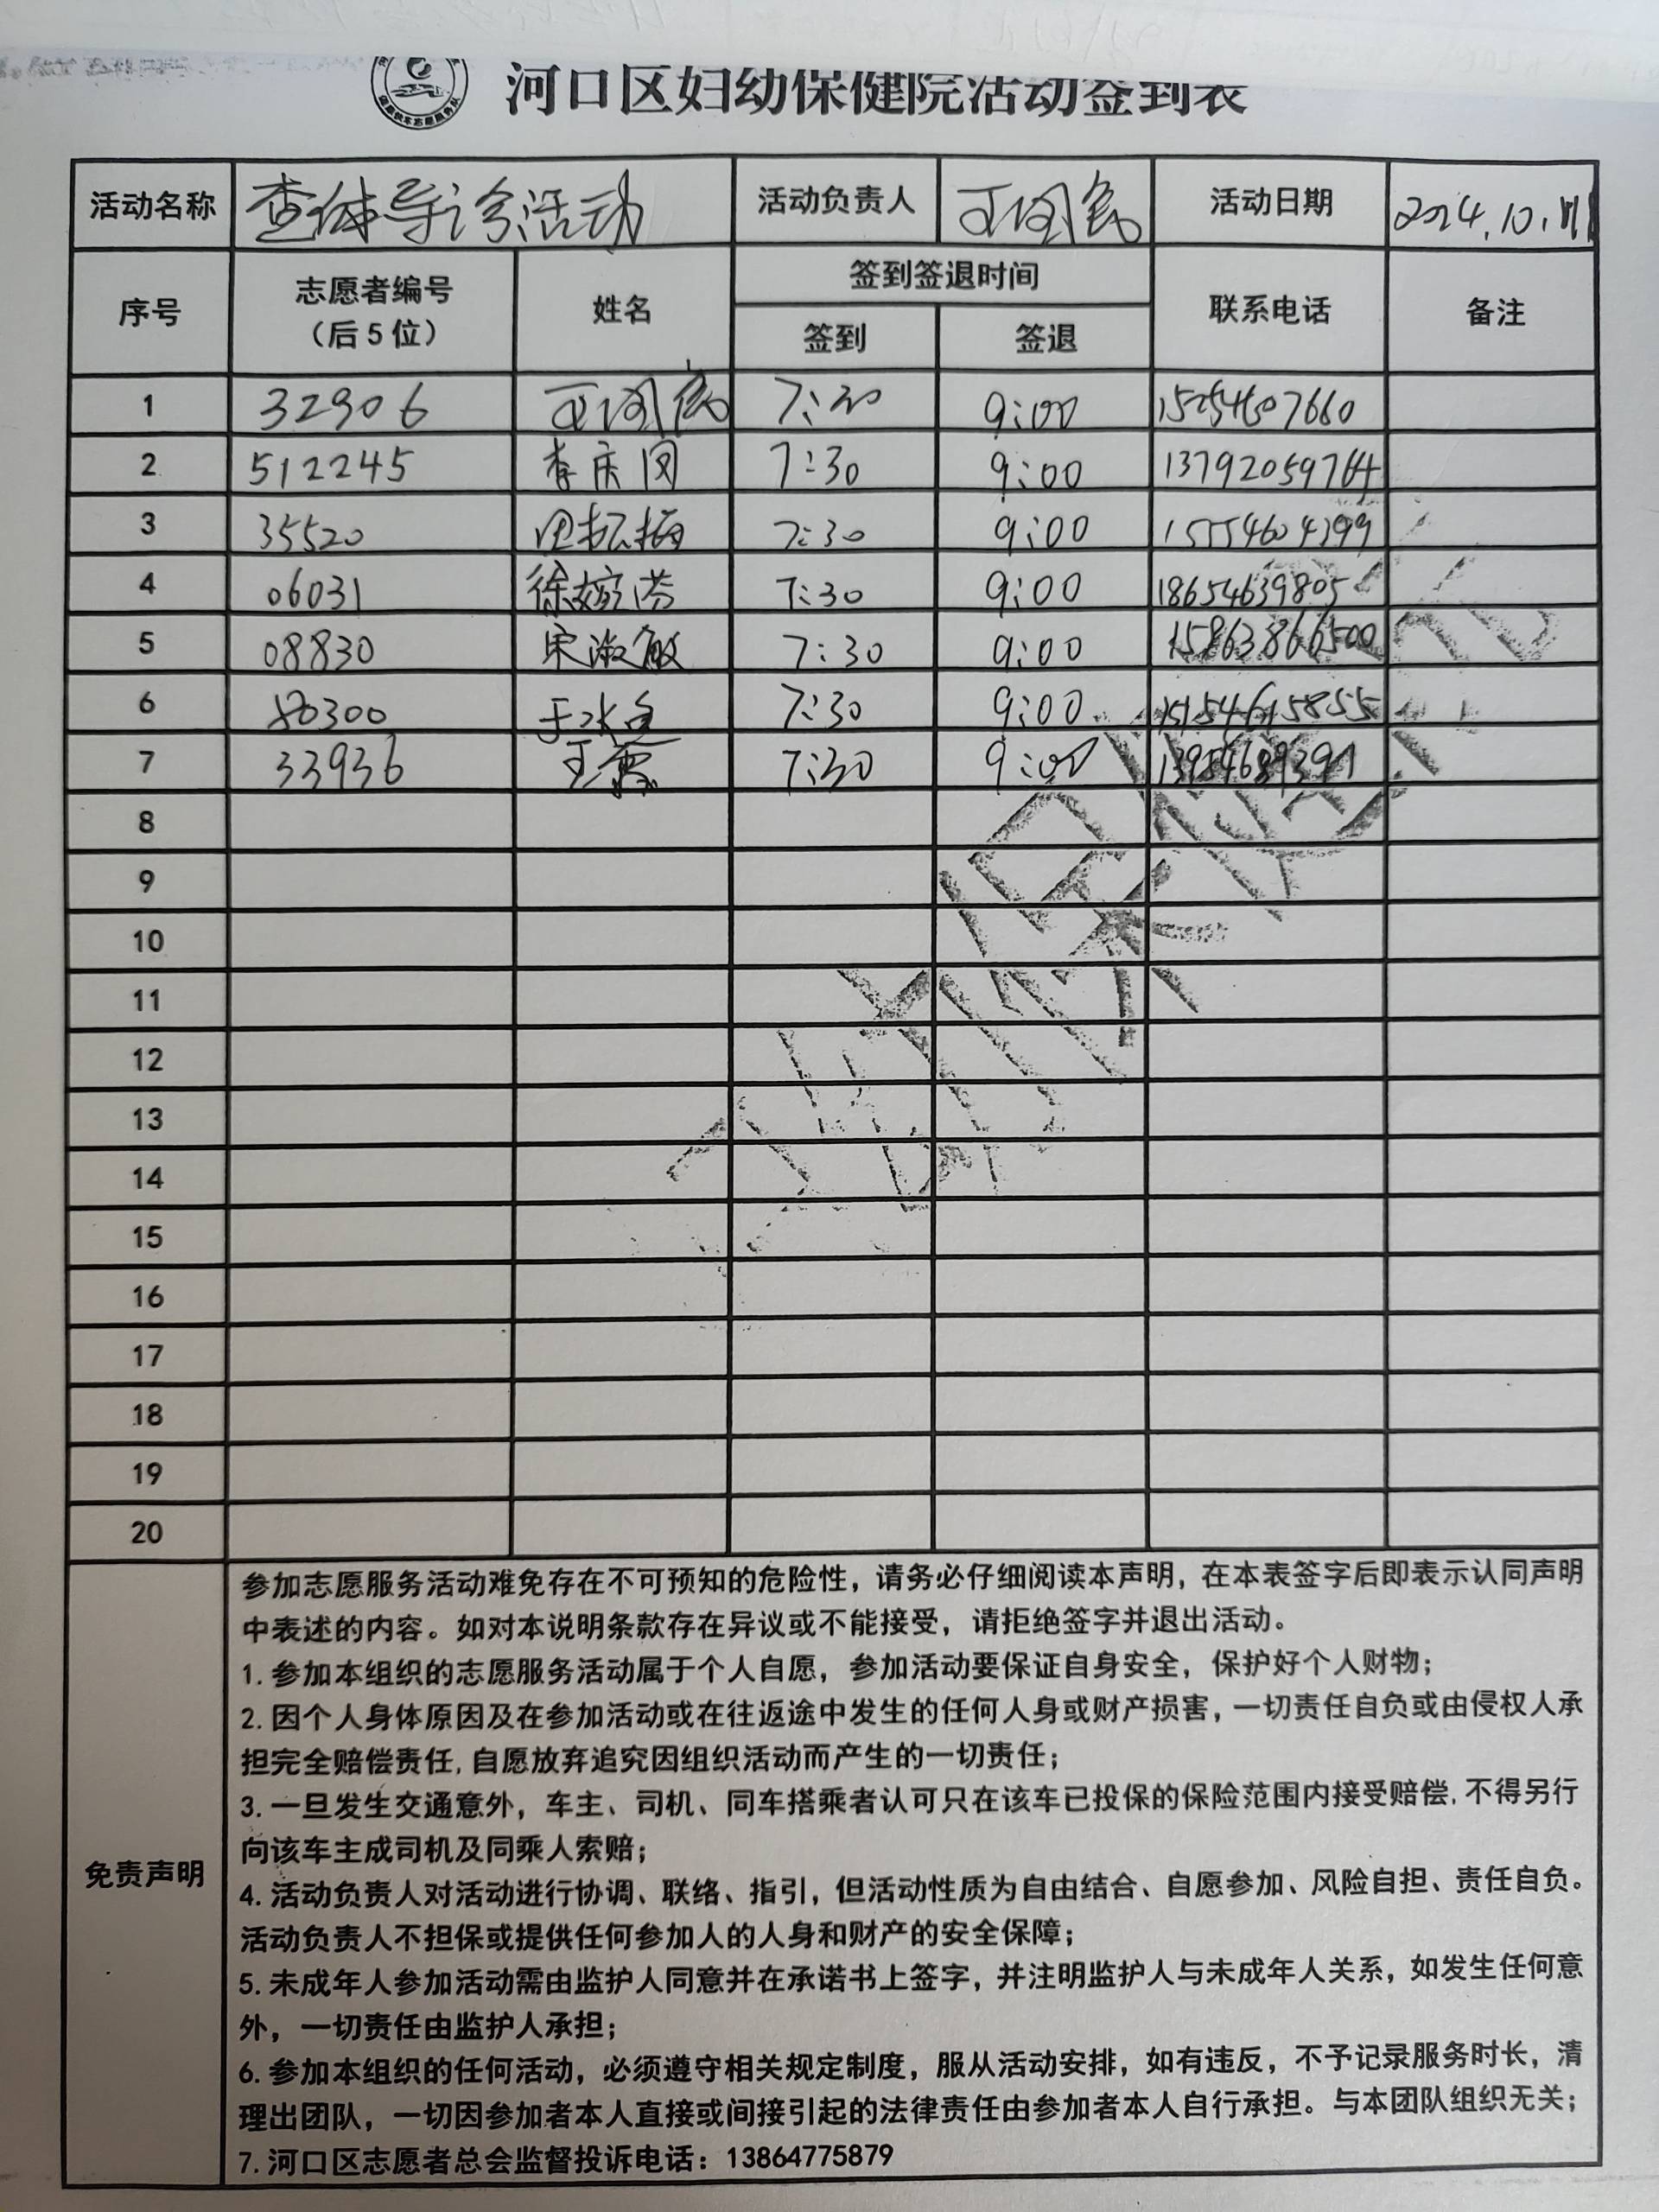 河口区妇幼保健院活动签到表
活动名称 查体导诊活动 活动负责人 王国民 活动日期 2024.10.
序号 志愿者编号（后5位） 姓名 签到签退时间 联系电话 备注
签到 签退
1 32906 王国民 7:30 9:00 15254607660
2 512245 李庆 7:30 9:00 13792059764
3 35520 7:30 9:00 15554604399
4 06031 徐婉芬 7:30 9:00 18654639805
5 08830 宋淑敏 7:30 9:00 15863866500
6 80300 7:30 9:00 15154615855
7 33936 王 7:30 9:00
8
9
10
11
12
13
14
15
16
17
18
19
20
免责声明
参加志愿服务活动难免存在不可预知的危险性，请务必仔细阅读本声明，在本表签字后即表示认同声明
中表述的内容。如对本说明条款存在异议或不能接受，请拒绝签字并退出活动。
1.参加本组织的志愿服务活动属于个人自愿，参加活动要保证自身安全，保护好个人财物；
2.因个人身体原因及在参加活动或在往返途中发生的任何人身或财产损害，一切责任自负或由侵权人承
担完全赔偿责任,自愿放弃追究因组织活动而产生的一切责任；
3.一旦发生交通意外，车主、司机、同车搭乘者认可只在该车已投保的保险范围内接受赔偿,不得另行
向该车主成司机及同乘人索赔；
4.活动负责人对活动进行协调、联络、指引，但活动性质为自由结合、自愿参加、风险自担、责任自负。
活动负责人不担保或提供任何参加人的人身和财产的安全保障；
5.未成年人参加活动需由监护人同意并在承诺书上签字，并注明监护人与未成年人关系，如发生任何意
外，一切责任由监护人承担；
6.参加本组织的任何活动，必须遵守相关规定制度，服从活动安排，如有违反，不予记录服务时长，清
理出团队，一切因参加者本人直接或间接引起的法律责任由参加者本人自行承担。与本团队组织无关；
7.河口区志愿者总会监督投诉电话：13864775879